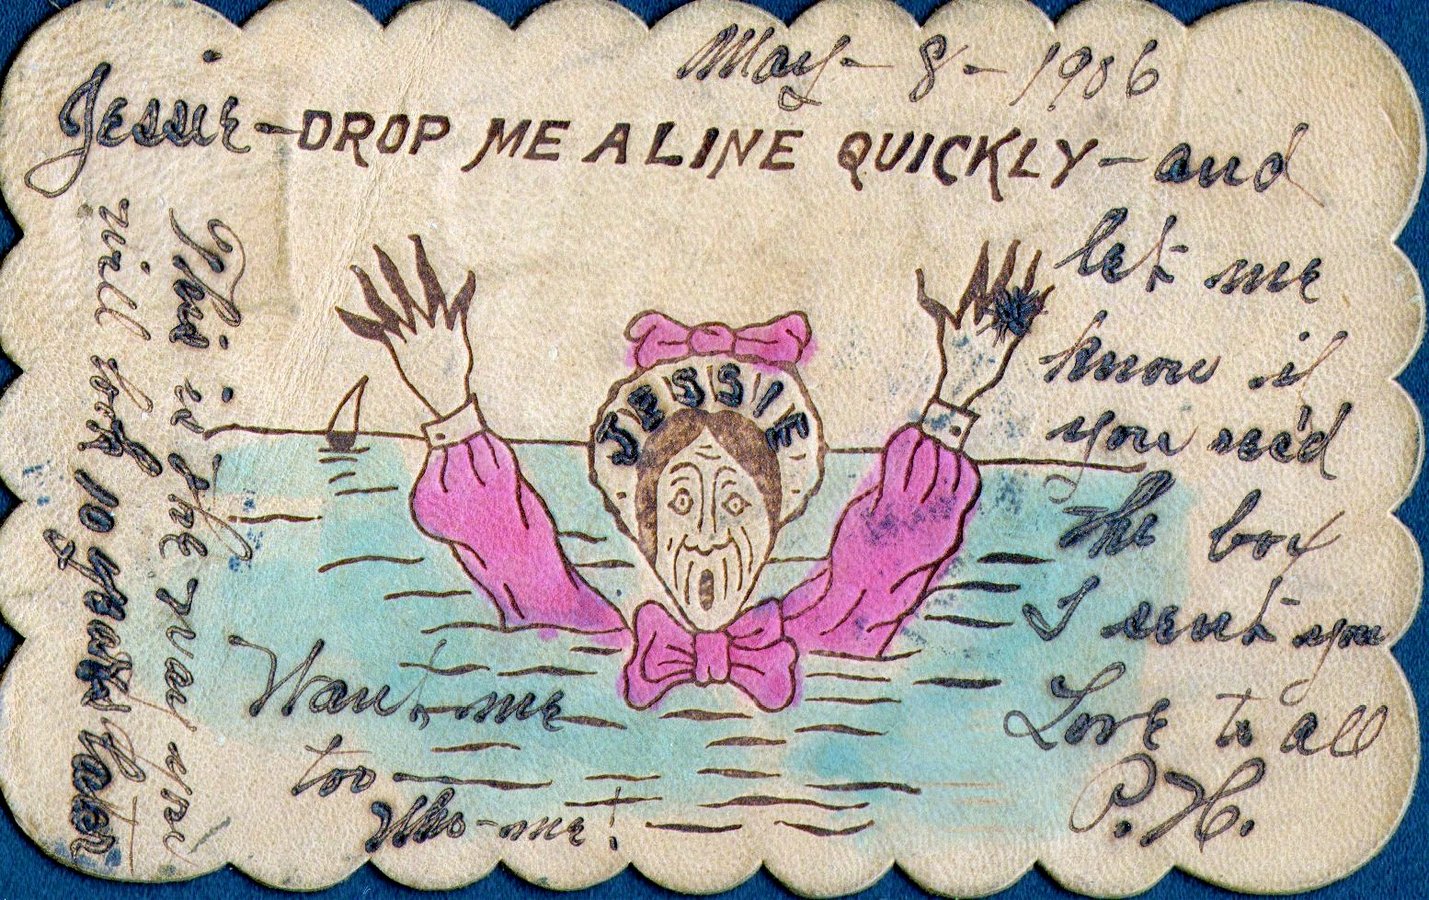 May - 8 - 1906
Jessie - DROP ME A LINE QUICKLY - and
let me
know if
you rec'd
the box
I sent you
Love to all
P. H.
JESSIE
Want me
too
Who - me!
This is the way you
will look 10 years later